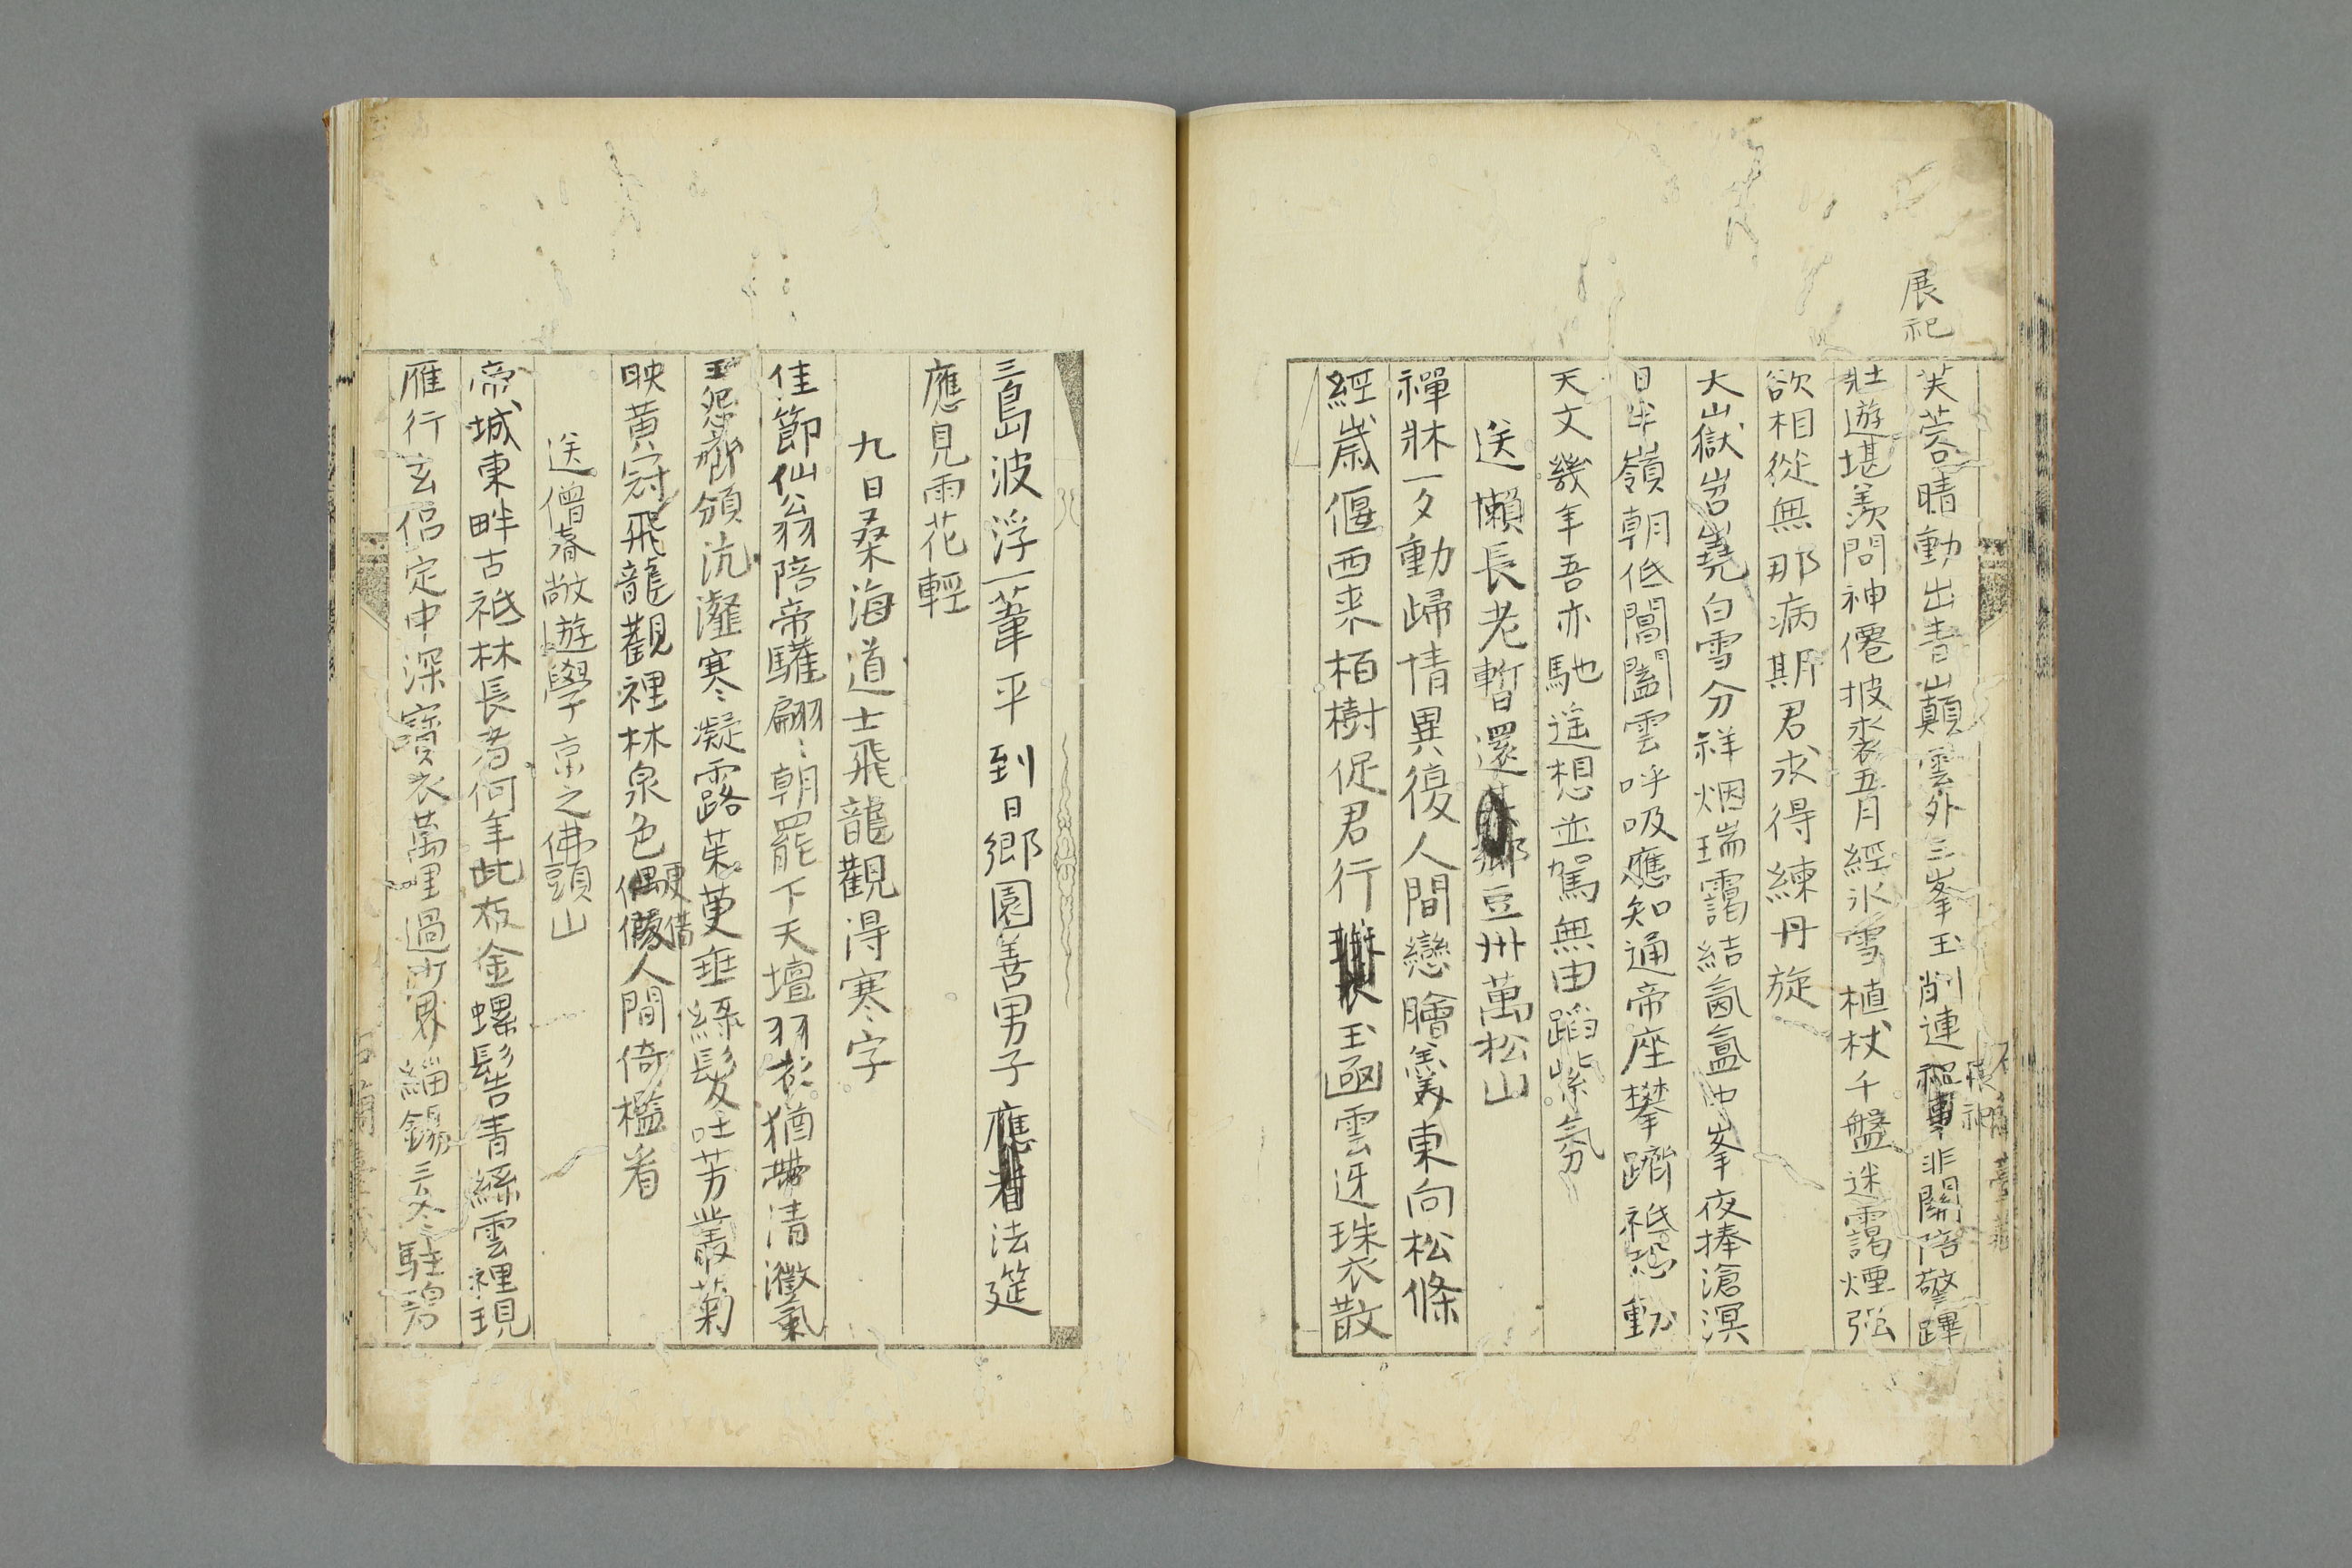 展祀
芙蓉晴動出青巓雲外三峯玉削連非關陪警蹕
壯遊堪羨問神僊披裘五月經氷雪植杖千盤迷靄煙強
欲相從無那病斯君求得練丹旋
大山嶽岧嶤白雪分祥烟瑞靄結氤氳中峯夜捧滄溟
日半嶺朝低閶闔雲呼吸應知通帝座攀躋祗恐動
天文幾年吾亦馳遥想並駕無由蹈紫氛
送懶長老暫還鄉豆州萬松山
禪牀一夕動歸情異復人間戀膾羹東向松條
經歲偃西来栢樹促君行玉凾雲迓珠衣散
三島波浮一葦平到日郷園善男子應法筵
應見雨花輕
九日桑海道士飛龍觀得寒字
佳節仙翁陪帝驩翩〻朝罷下天壇羽衣猶帶清澂氣
玉怨卿頒沆瀣寒凝露茱萸垂緑髮吐芳叢菊
映黄冠飛龍觀裡林泉色偶假人間倚檻看
更借
送僧春敞遊學京之佛頭山
帝城東畔古祗林長者何年此布金螺髻青絲雲裡現
雁行玄侶定中深寶衣萬里過沙界緇錫三冬駐碧